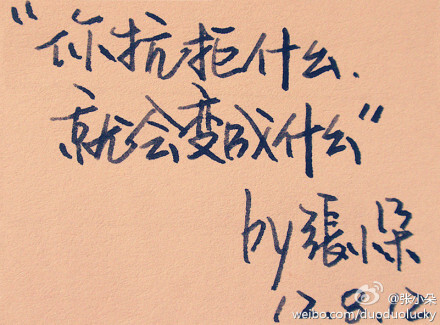 “你抗拒什么.
就会变成什么”
by 張小朵
12.9.12
@张小朵
weibo.com/duoduolucky